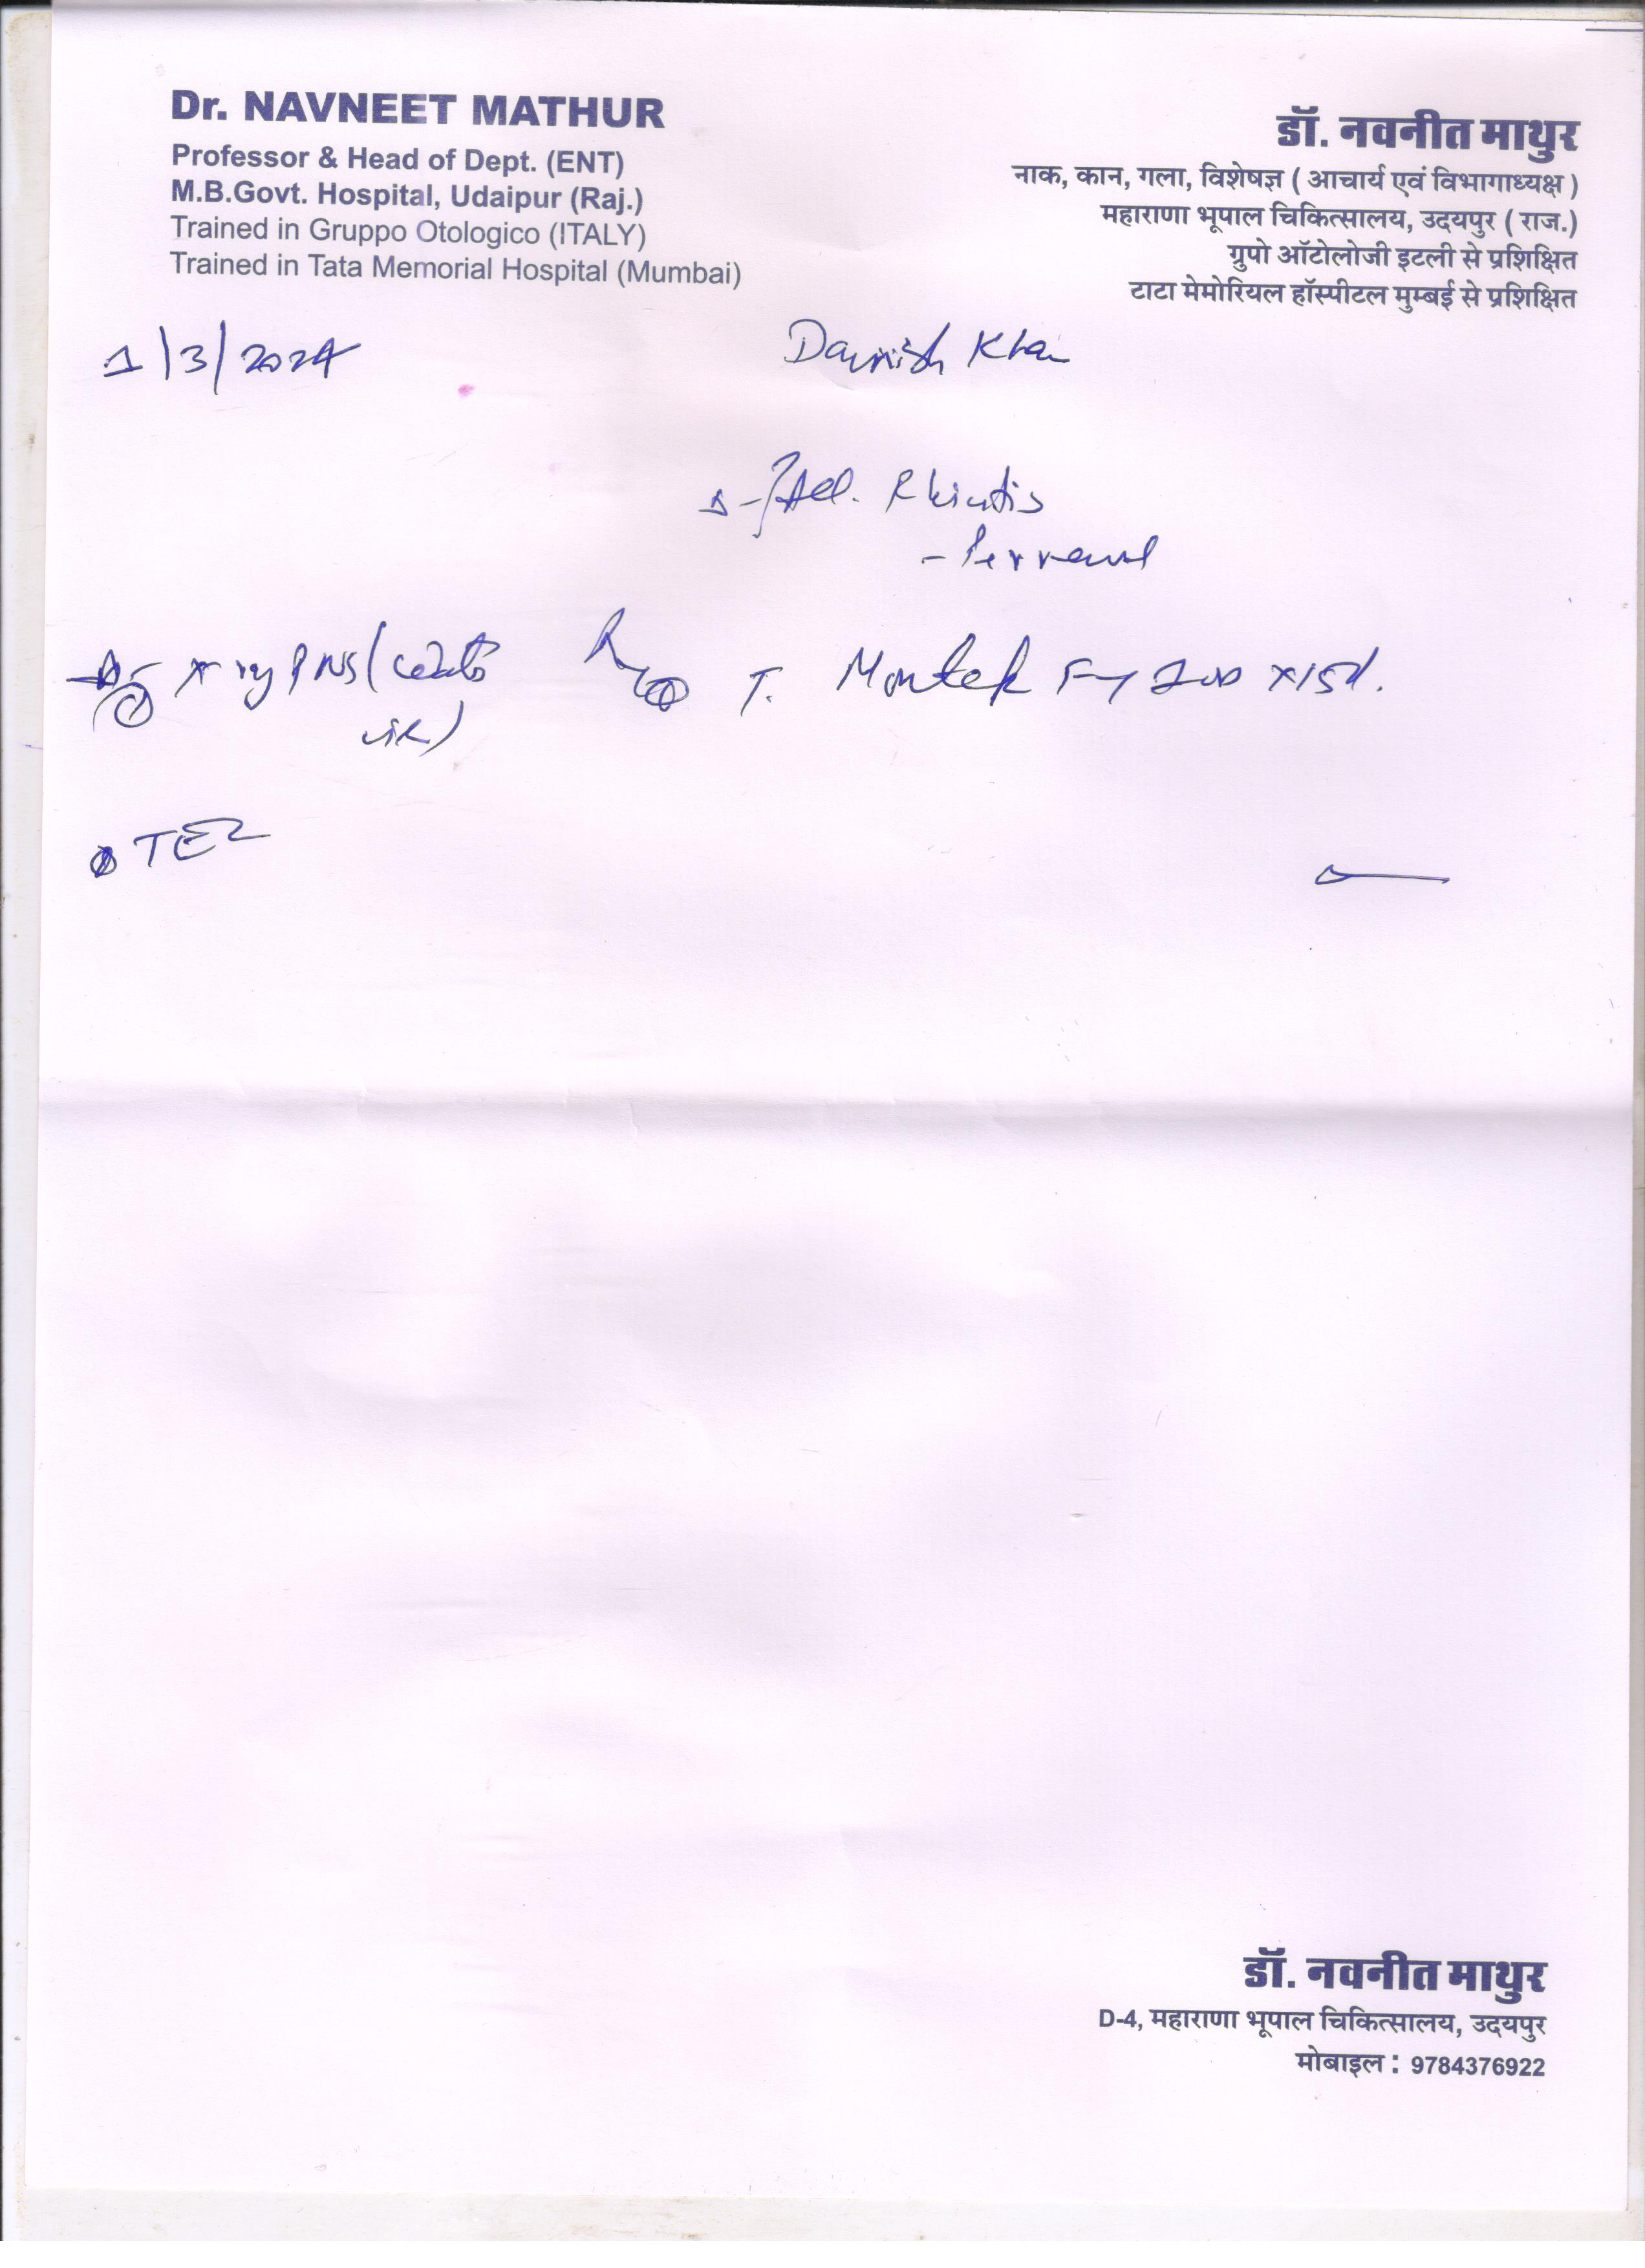 Dr. NAVNEET MATHUR
Professor & Head of Dept. (ENT)
M.B.Govt. Hospital, Udaipur (Raj.)
Trained in Gruppo Otologico (ITALY)
Trained in Tata Memorial Hospital (Mumbai)
डॉ. नवनीत माथुर
नाक, कान, गला, विशेषज्ञ ( आचार्य एवं विभागाध्यक्ष )
महाराणा भूपाल चिकित्सालय, उदयपुर ( राज.)
ग्रुपो ऑटोलोजी इटली से प्रशिक्षित
टाटा मेमोरियल हॉस्पीटल मुम्बई से प्रशिक्षित
1/3/2024
Danish Khan
All. Rhinitis
X ray PNS
T. Montek 200 x15d.
डॉ. नवनीत माथुर
D-4, महाराणा भूपाल चिकित्सालय, उदयपुर
मोबाइल : 9784376922